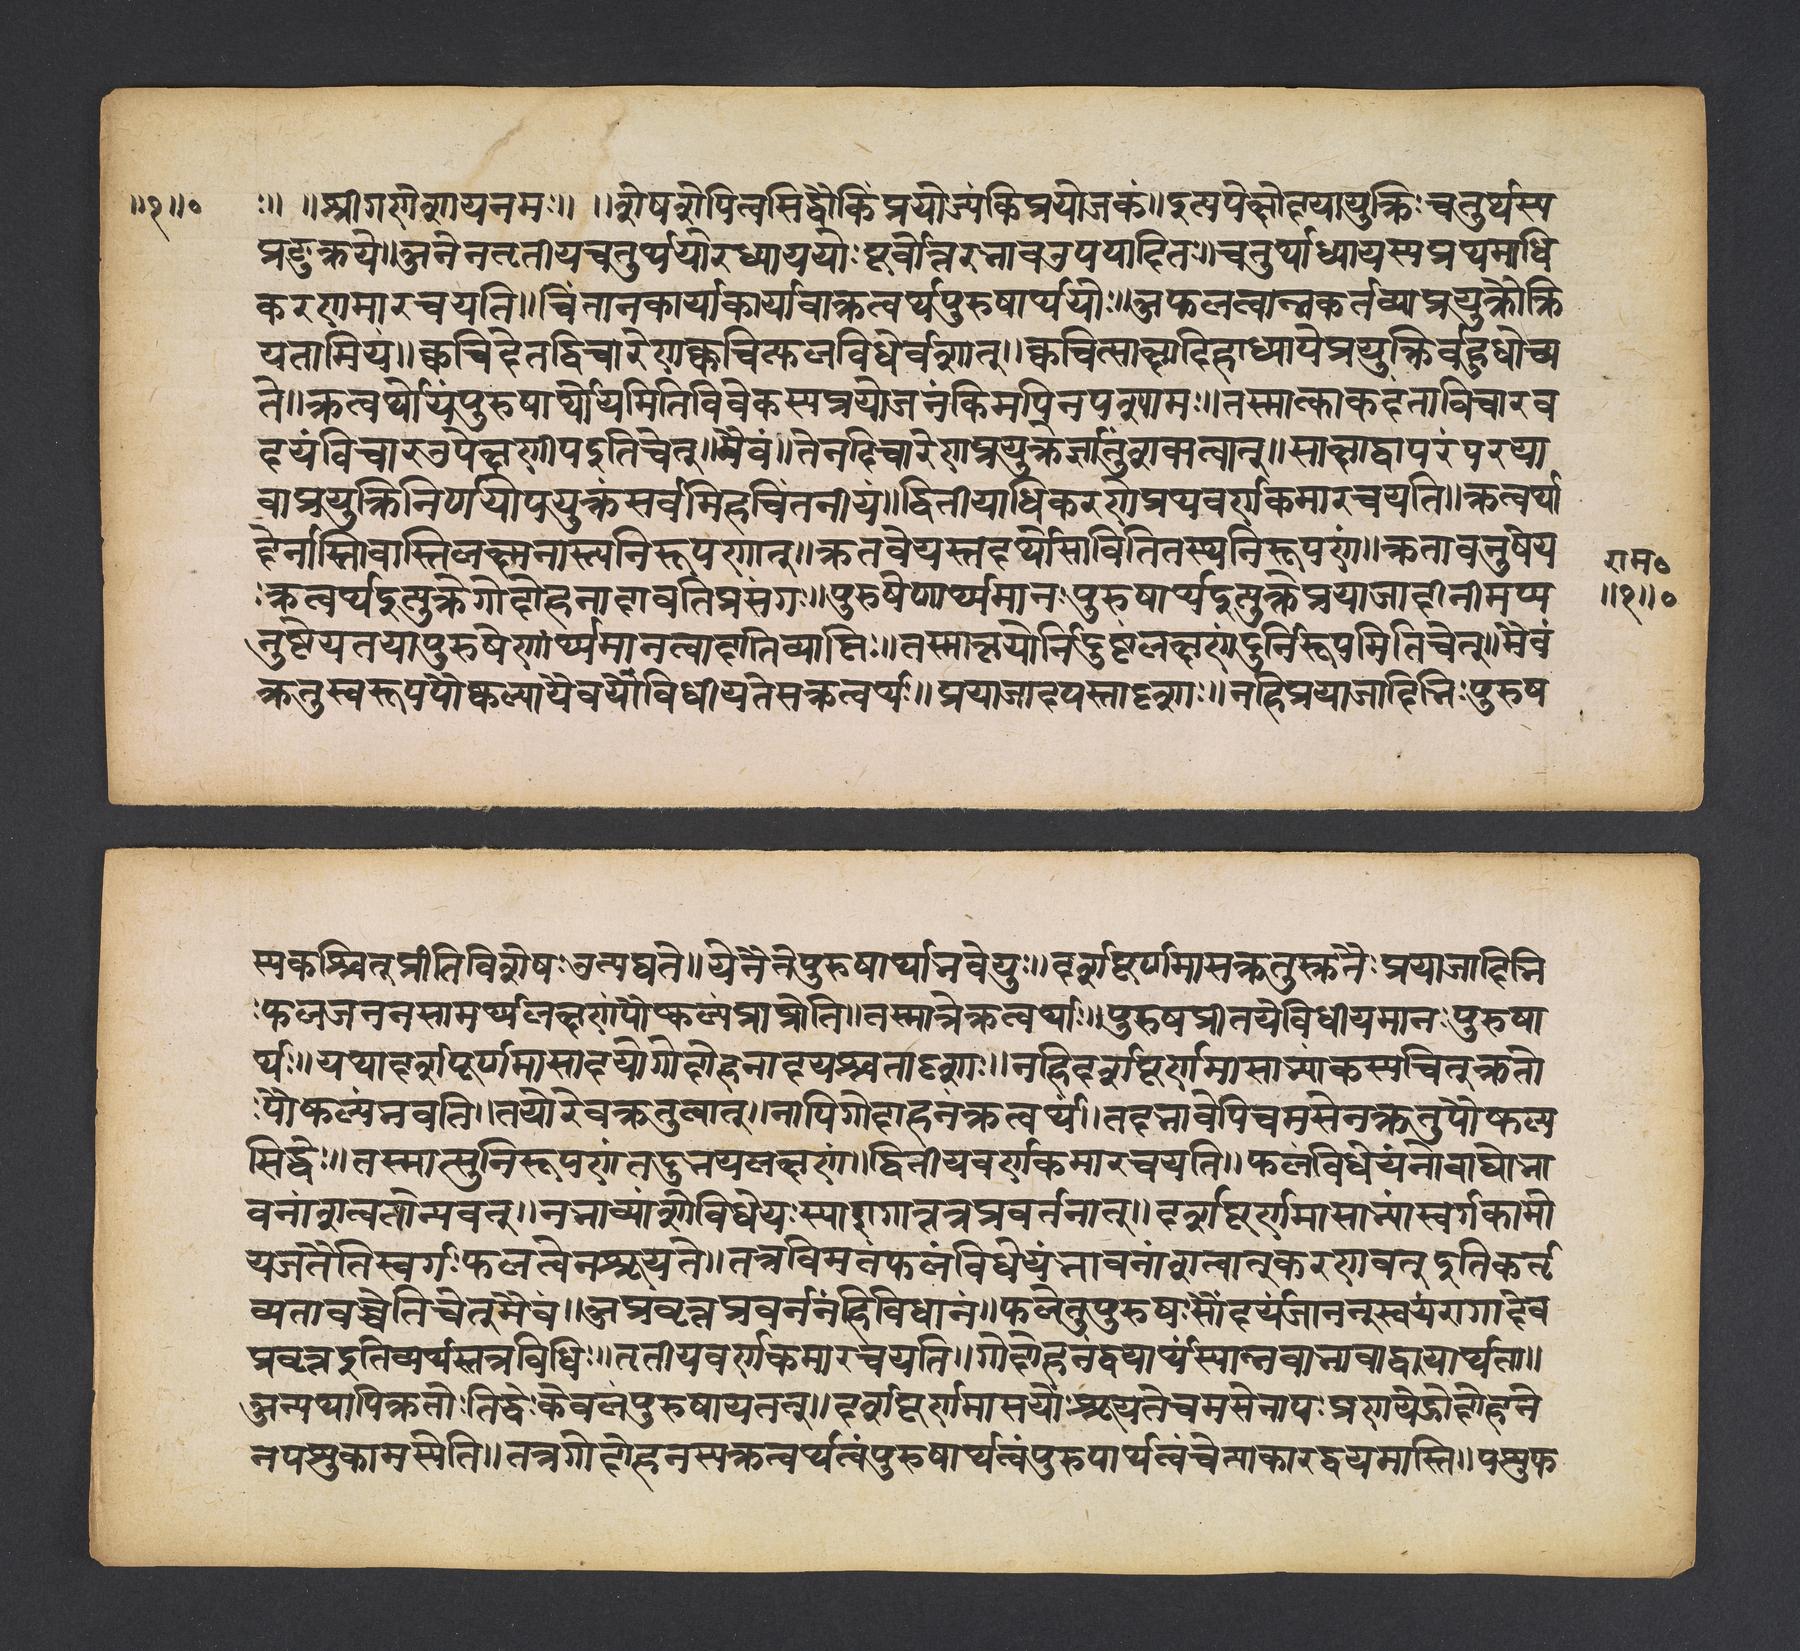 ॥१॥०
॥ ॥श्रीगणेशायनमः॥ ॥शेषशेषित्वसिद्धौकिंप्रयोज्यंकिंप्रयोजकं॥इत्यपेक्षोदयायुक्तिःचतुर्थस्य
प्रयुक्तये॥अनेनतृतीयचतुर्थयोरध्याययोःपूर्वोत्तरभावउपपादितः॥चतुर्थाध्यायस्यप्रथमाधि
करणमारचयति॥चिंतानकार्याकार्यावाक्रत्वर्थपुरुषार्थयोः॥अफलत्वान्नकर्तव्याप्रयुक्तौक्रि
यतामियं॥क्वचिदेतद्विचारेणक्वचित्फलविधेर्वशात्॥क्वचित्साक्षादिहाध्यायेप्रयुक्तिर्बहुधोच्य
ते॥क्रत्वर्थोयंपुरुषार्थोयमितिविवेकस्यप्रयोजनंकिमपिनपश्यामः॥तस्मात्काकदंताविचारव
दयंविचारउपेक्षणीयइतिचेत्॥मैवं॥तेनविचारेणप्रयुक्तेर्ज्ञातुंशक्यत्वात्॥साक्षाद्वापरंपरया
वाप्रयुक्तिनिर्णयोपयुक्तंसर्वमिहचिंतनीयं॥द्वितीयाधिकरणेप्रथवर्णकमारचयति॥क्रत्वर्था
देर्नास्तिवास्तिलक्ष्मनास्त्यनिरूपणात्॥क्रतवेयस्तदर्थोसावितितस्यनिरूपणं॥क्रतावनुष्ठेय
ःक्रत्वर्थइत्युक्तेगोदोहनादावतिप्रसंगः॥पुरुषेणार्थ्यमानःपुरुषार्थइत्युक्तेप्रयाजादीनामप्य
नुष्ठेयतयापुरुषेणार्थ्यमानत्वादतिव्याप्तिः॥तस्मात्तयोर्निर्दुष्टंलक्षणंदुर्निरूपमितिचेत्॥मैवं
क्रतुस्वरूपपौष्कल्यायैवयोविधीयतेसक्रत्वर्थः॥प्रयाजादयस्तादृशाः॥नहिप्रयाजादिभिःपुरुष
राम०
॥१॥०
स्यकश्चित्प्रीतिविशेषःउत्पद्यते॥येनैतेपुरुषार्थाभवेयुः॥दर्शपूर्णमासक्रतुस्क्तनैःप्रयाजादिभि
ःफलजननसामर्थ्यलक्षणंपौष्कल्यंप्राप्नोति॥तस्मात्तेक्रत्वर्थाः॥पुरुषप्रीतयेविधीयमानःपुरुषा
र्थः॥यथादर्शपूर्णमासादयोगोदोहनादयश्चतादृशाः॥नहिदर्शपूर्णमासाभ्यांकस्यचित्क्रतो
ःपौष्कल्यंभवति॥तयोरेवक्रतुत्वात्॥नापिगोदोहनंक्रत्वर्थं॥तदभावेपिचमसेनक्रतुपौष्कल्य
सिद्धेः॥तस्मात्सुनिरूपणंतदुभयलक्षणं॥द्वितीयवर्णकमारचयति॥फलंविधेयंनोवाद्योभा
वनांशत्वतोन्यवत्॥नभाव्यांशोविधेयःस्याद्रागात्तत्रप्रवर्तनात्॥दर्शपूर्णमासाभ्यांस्वर्गकामो
यजेतेतिस्वर्गःफलत्वेनश्रूयते॥तत्रविमतंफलंविधेयंभावनांशत्वात्करणवत्इतिकर्त
व्यतावच्चेतिचेत्मैवं॥अप्रवृत्तप्रवर्तनंहिविधानं॥फलेतुपुरुषःसौंदर्यंजानन्स्वयंरागादेव
प्रवृत्तइतिव्यर्थस्तत्रविधिः॥तृतीयवर्णकमारचयति॥गोदोहनंद्वयार्थंस्यान्नवाभावाद्वयार्थता॥
अन्यथापिक्रतोःसिद्धेःकेवलंपुरुषायतत्॥दर्शपूर्णमासयोःश्रूयतेचमसेनापःप्रणयेद्गोदोहने
नपशुकामस्येति॥तत्रगोदोहनस्यक्रत्वर्थत्वंपुरुषार्थत्वंपुरुषार्थत्वंचेत्याकारद्वयमास्ति॥पशुफ